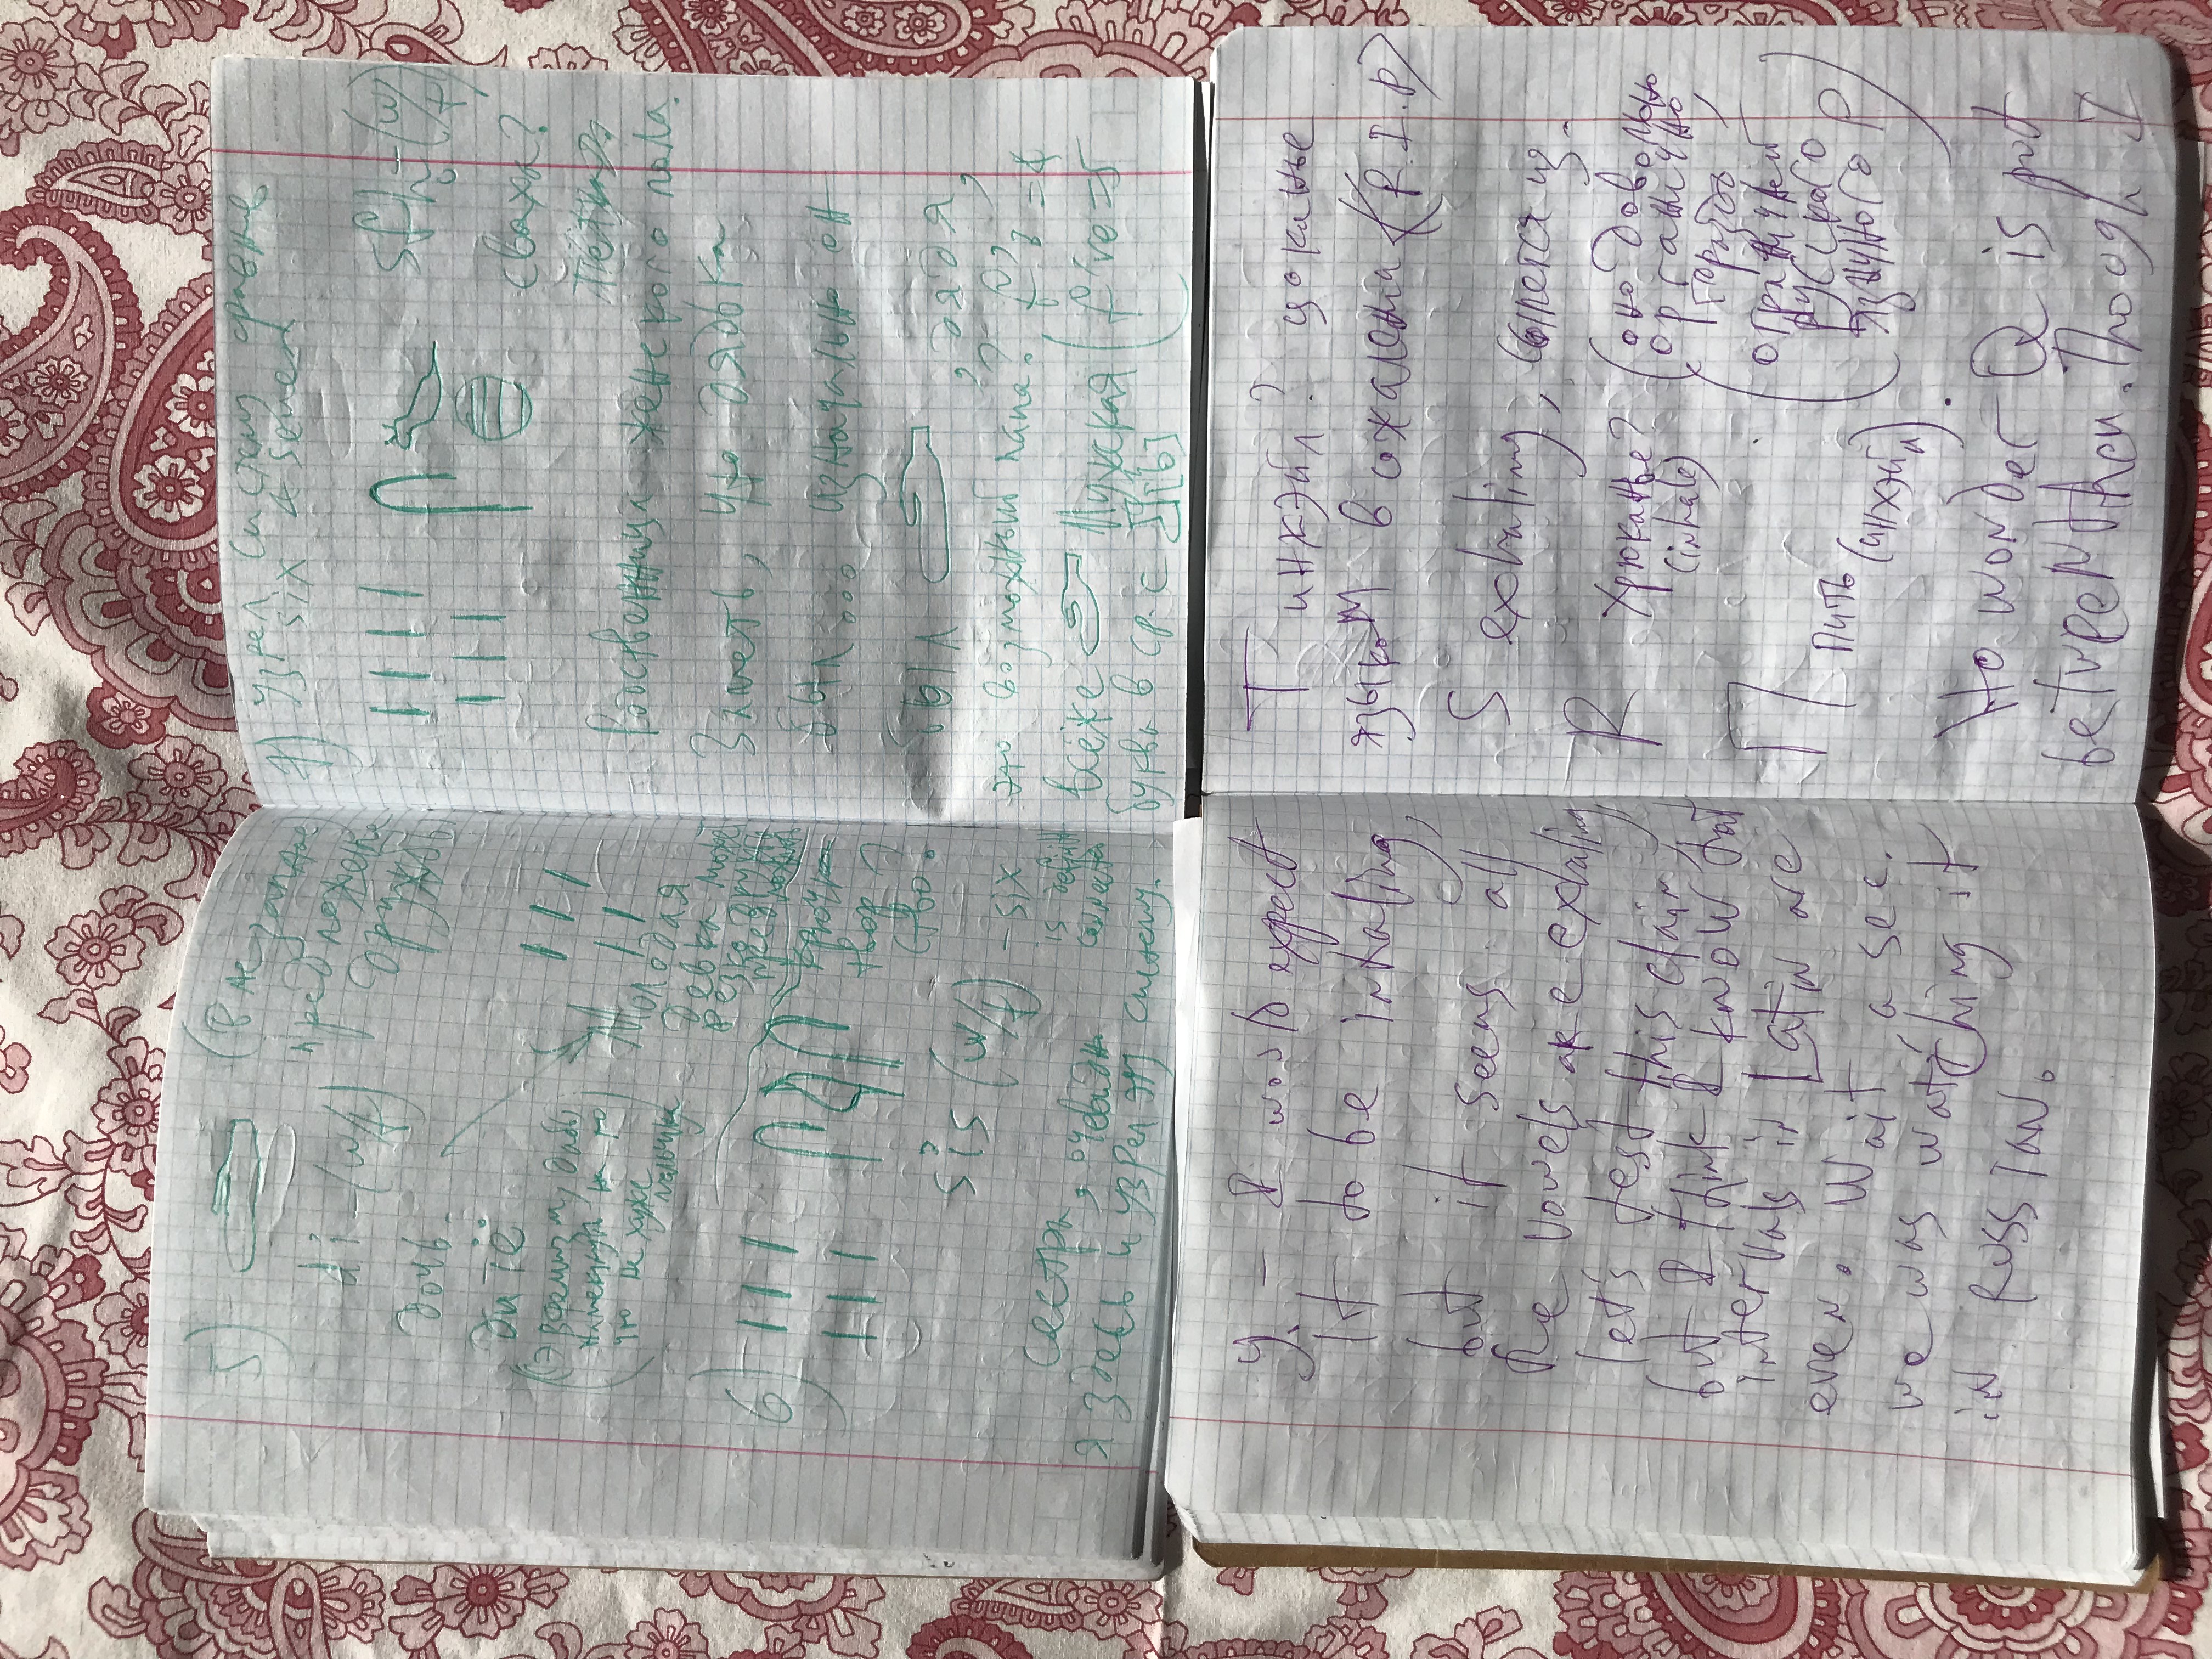 5) (внезапное
предложение
дружбы)
di-(w/t)
дочь-
дитё
(Эвфемизм, дабы
намекнуть на то
что не хуже
мальчика)
Молодая
девка может
резко дружбу
предложить
6)
крючко
твор
ство?
sis (w/t) - six
is definit
connected
сестра, очевидно
я здесь и узрел эту систему.
7) узрел систему сравнив
six & seven
sfh-(w/t)
сваха?
Родственница женского пола.
Заметь, что дядька
был... изначально он
был , дядя,
это возможный папа?
всёже Мужская
буква в ср. с
five = 5
Y. - I would expect
it to be inhaling,
but it seems all
the vowels are exhaling,
let's test this claim,
but I think I know that
intervals in Latin are
even. Wait a sec.
we was watching it
in RUSSIAN.
T инхэйл? цоканье
языком в сожалении (R.I.P)
S exhaling, сыпется из.
R хрюканье? (оно довольно
(inhale) органично,
гораздо
органичней
русского
язычного Р)
П пить (инхэйл).
No wonder Q is put
between them. Though I